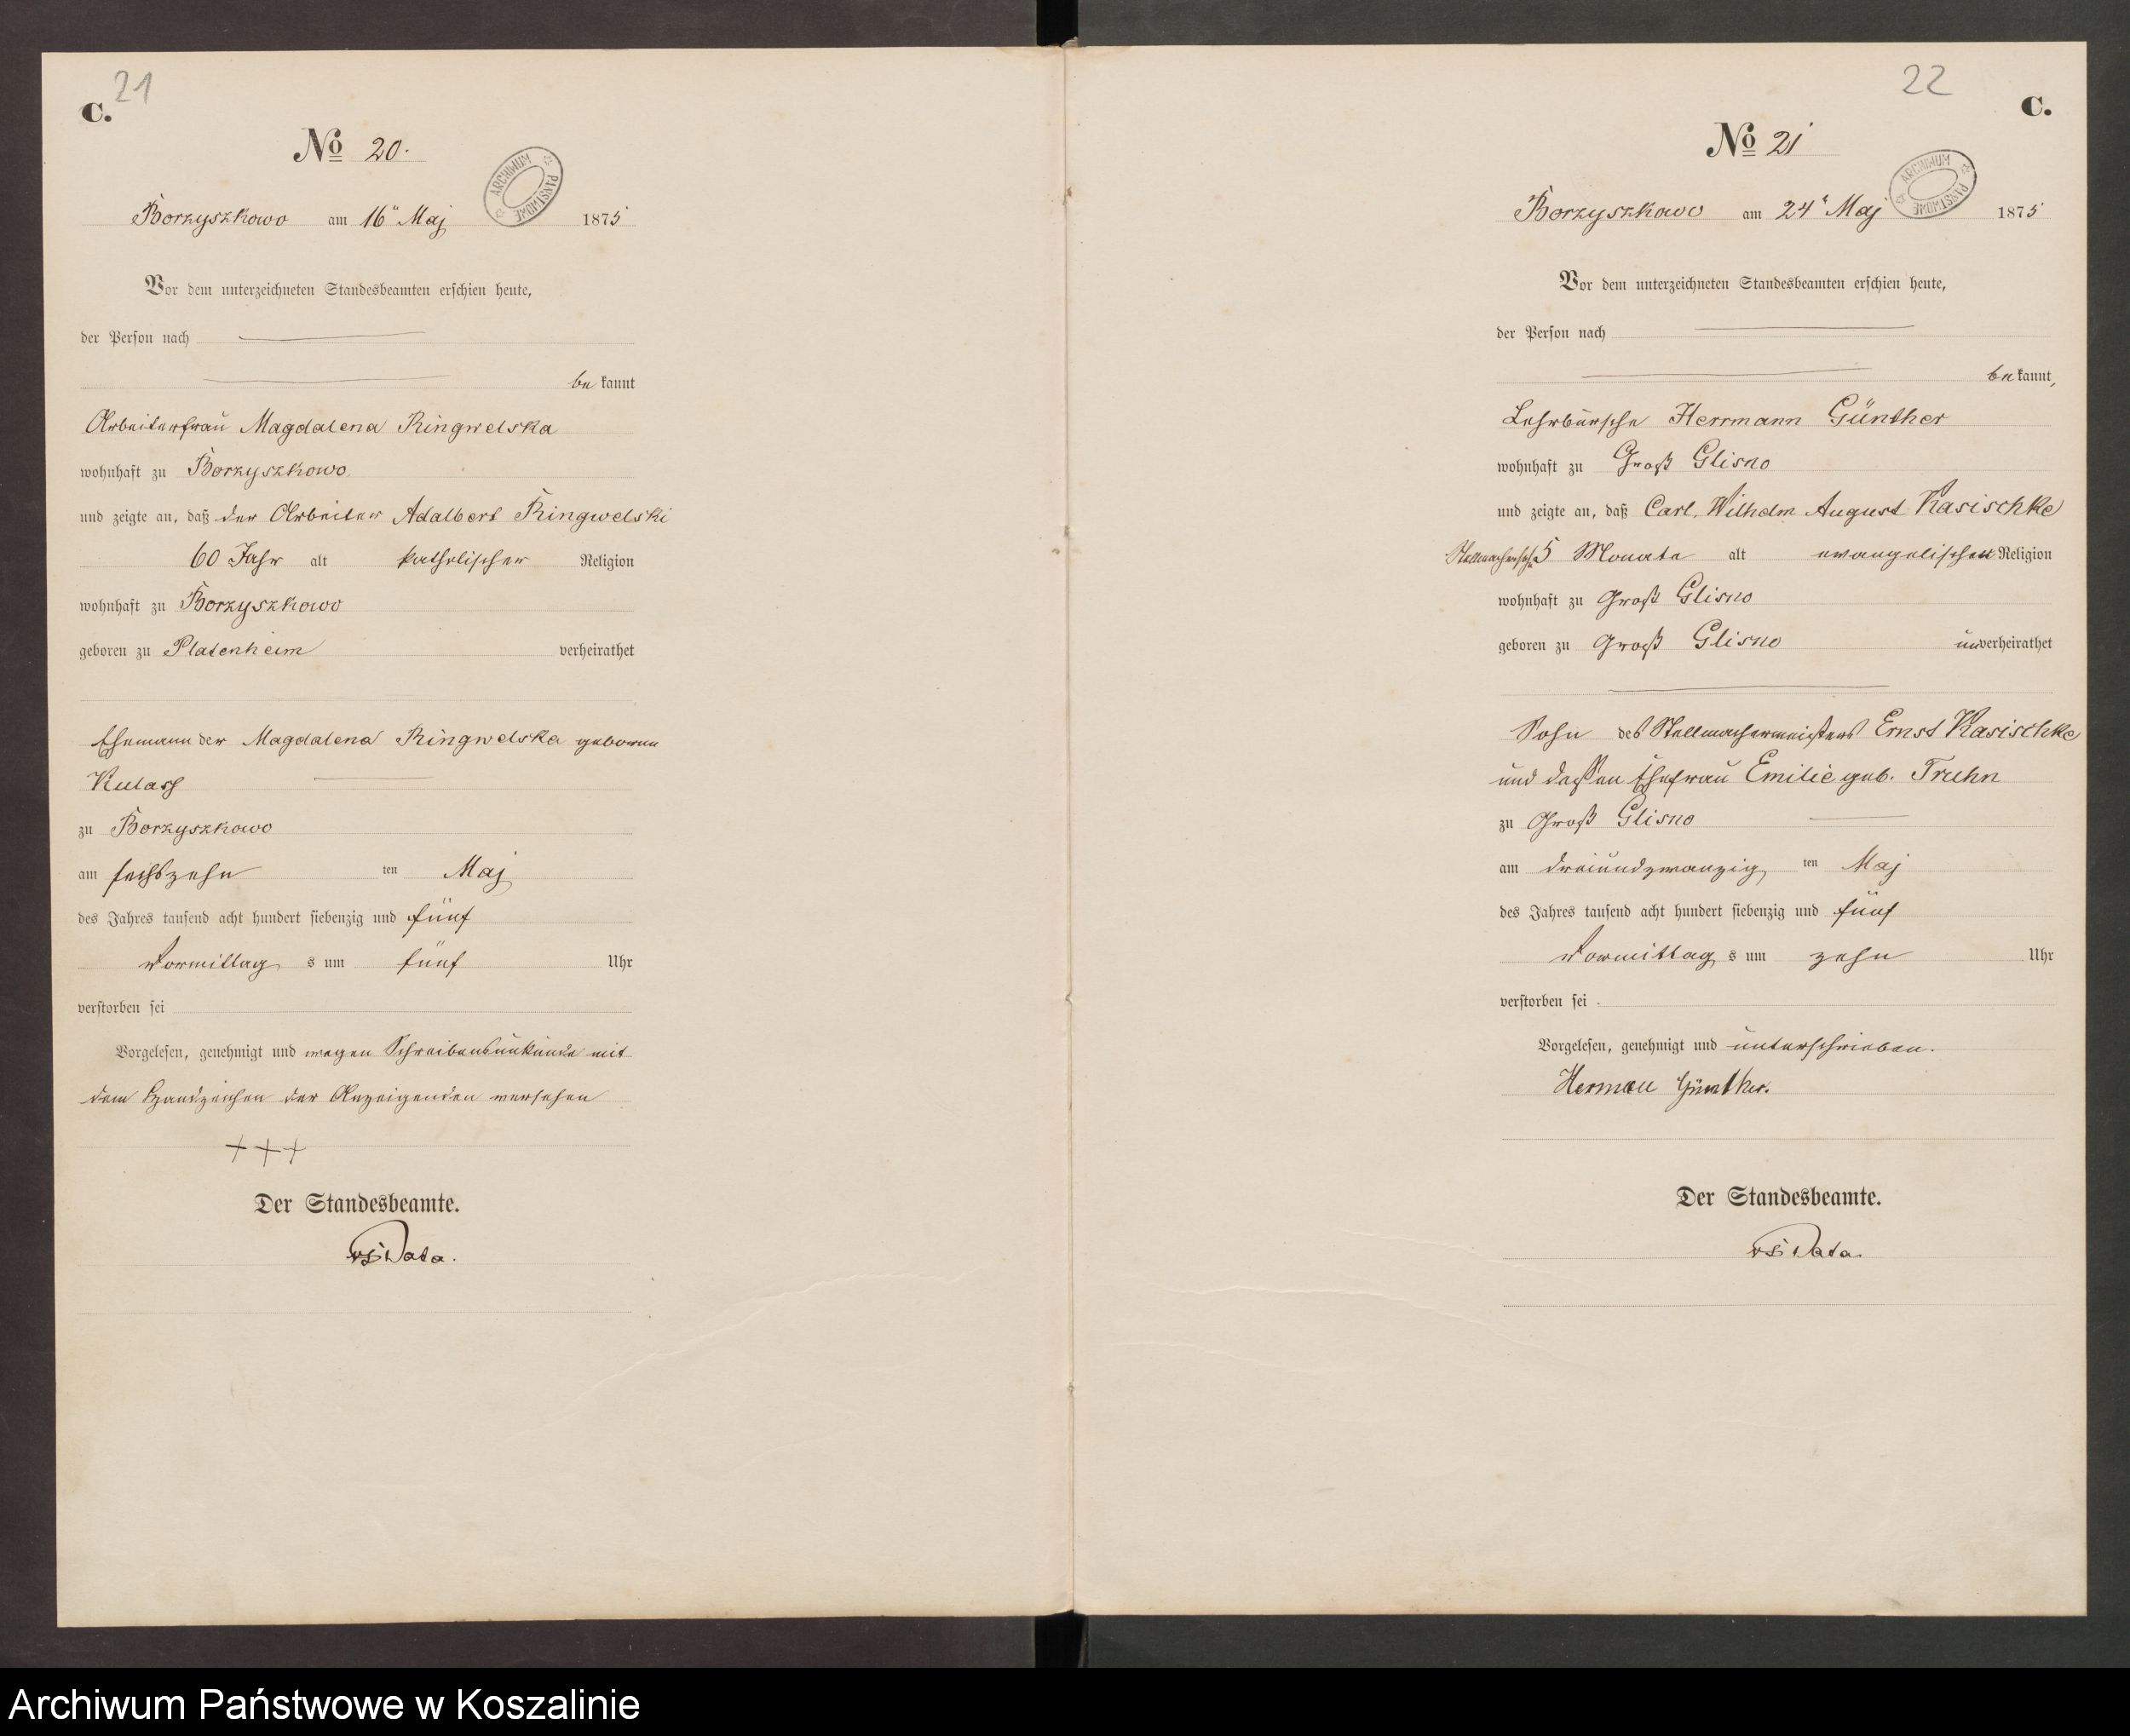 21
C.
No 20.
Borzyszkowo am 16" Maj 1875
ARCHIWUM PAŃSTWOWE
Vor dem unterzeichneten Standesbeamten erschien heute,
der Person nach
be kannt
Arbeiterfrau Magdalena Ringwelska
wohnhaft zu Borzyszkowo.
und zeigte an, daß der Arbeiter Adalbert Ringwelski
60 Jahr alt katholischer Religion
wohnhaft zu Borzyszkowo
geboren zu Platenheim verheirathet
Ehemann der Magdalena Ringwelska geborene
Kulass
zu Borzyszkowo
am sechszehn ten Maj
des Jahres tausend acht hundert siebenzig und fünf
Vormittag s um fünf Uhr
verstorben sei
Vorgelesen, genehmigt und wegen Schreibensunkunde mit
dem Handzeichen der Anzeigenden versehen
+++
Der Standesbeamte.
Data.
22
C.
No 21
Borzyszkowo am 24" Maj 1875
ARCHIWUM PAŃSTWOWE
Vor dem unterzeichneten Standesbeamten erschien heute,
der Person nach
be kannt,
Lehrbursche Herrmann Günther
wohnhaft zu Groß Glisno
und zeigte an, daß Carl Wilhelm August Kasischke
Stellmachersohn 5 Monate alt evangelischen Religion
wohnhaft zu Groß Glisno
geboren zu Groß Glisno unverheirathet
Sohn des Stellmachermeisters Ernst Kasischke
und dessen Ehefrau Emilie geb. Truhn
zu Groß Glisno
am dreiundzwanzig ten Maj
des Jahres tausend acht hundert siebenzig und fünf
Vormittag s um zehn Uhr
verstorben sei
Vorgelesen, genehmigt und unterschrieben.
Herman Günther.
Der Standesbeamte.
Data.
Archiwum Państwowe w Koszalinie